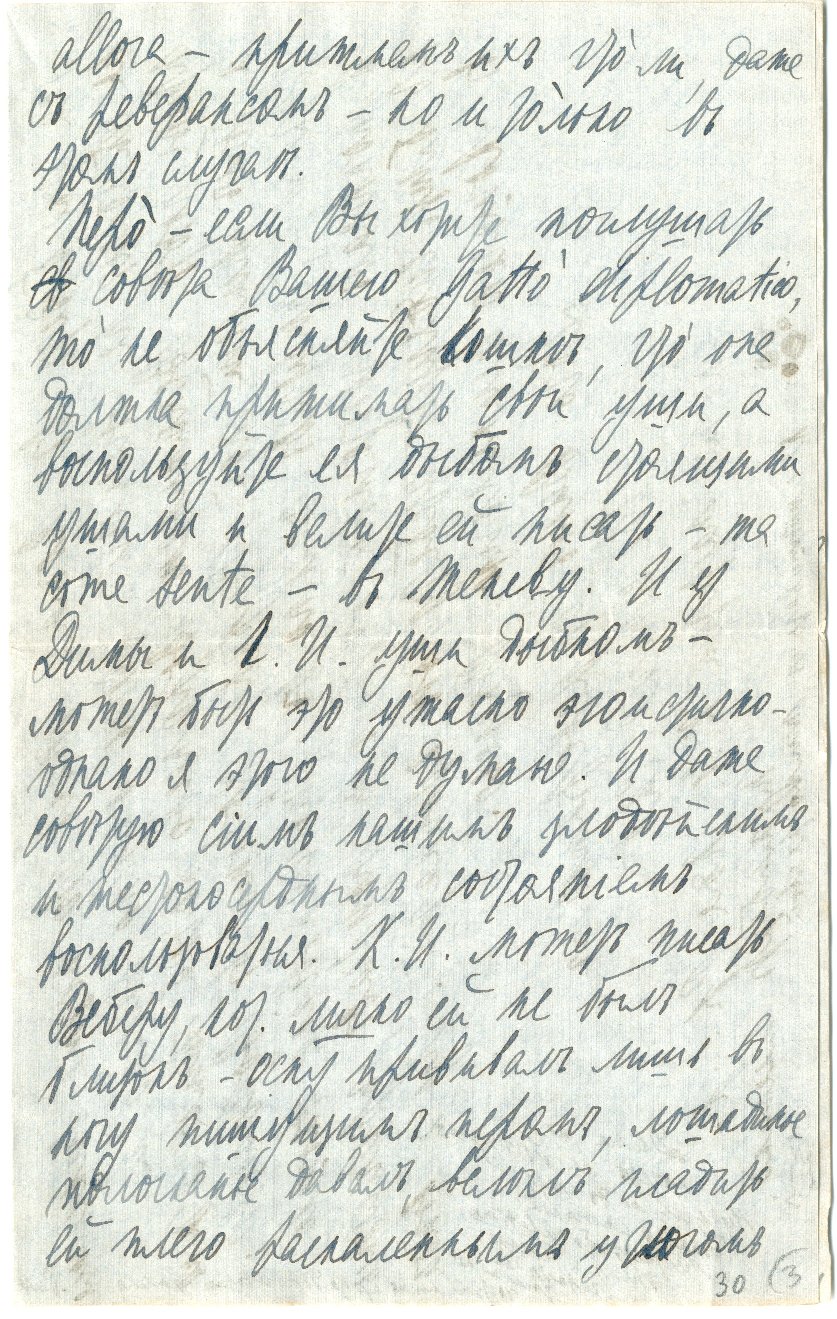 allora – прижмемъ ихъ что ли, даже
съ реверансомъ – но и только въ
этомъ случаѣ.
Però – если Вы хотите послушать
совѣта Вашего Gatto diplomatico,
то не объясняйте кошкѣ, что она
должна прижимать свои уши, а
воспользуйтесь ея дыбомъ стоящими
ушами и велите ей писать – ma
come sente – въ Женеву. И у
Димы и К. И. уши дыбомъ –
можетъ быть это ужасно эгоистично –
однако я этого не думаю. И даже
совѣтую симъ нашимъ злодѣйскимъ
и жестокосерднымъ состояніемъ
воспользоваться. К. И. можетъ писать
Веберу, кот. лично ей не былъ
близокъ – оспу прививалъ лишь въ
ногу пишущимъ перомъ, лошадиное
полосканье давалъ, велѣлъ гладить
ей плечо раскаленнымъ утюгомъ
30 (3